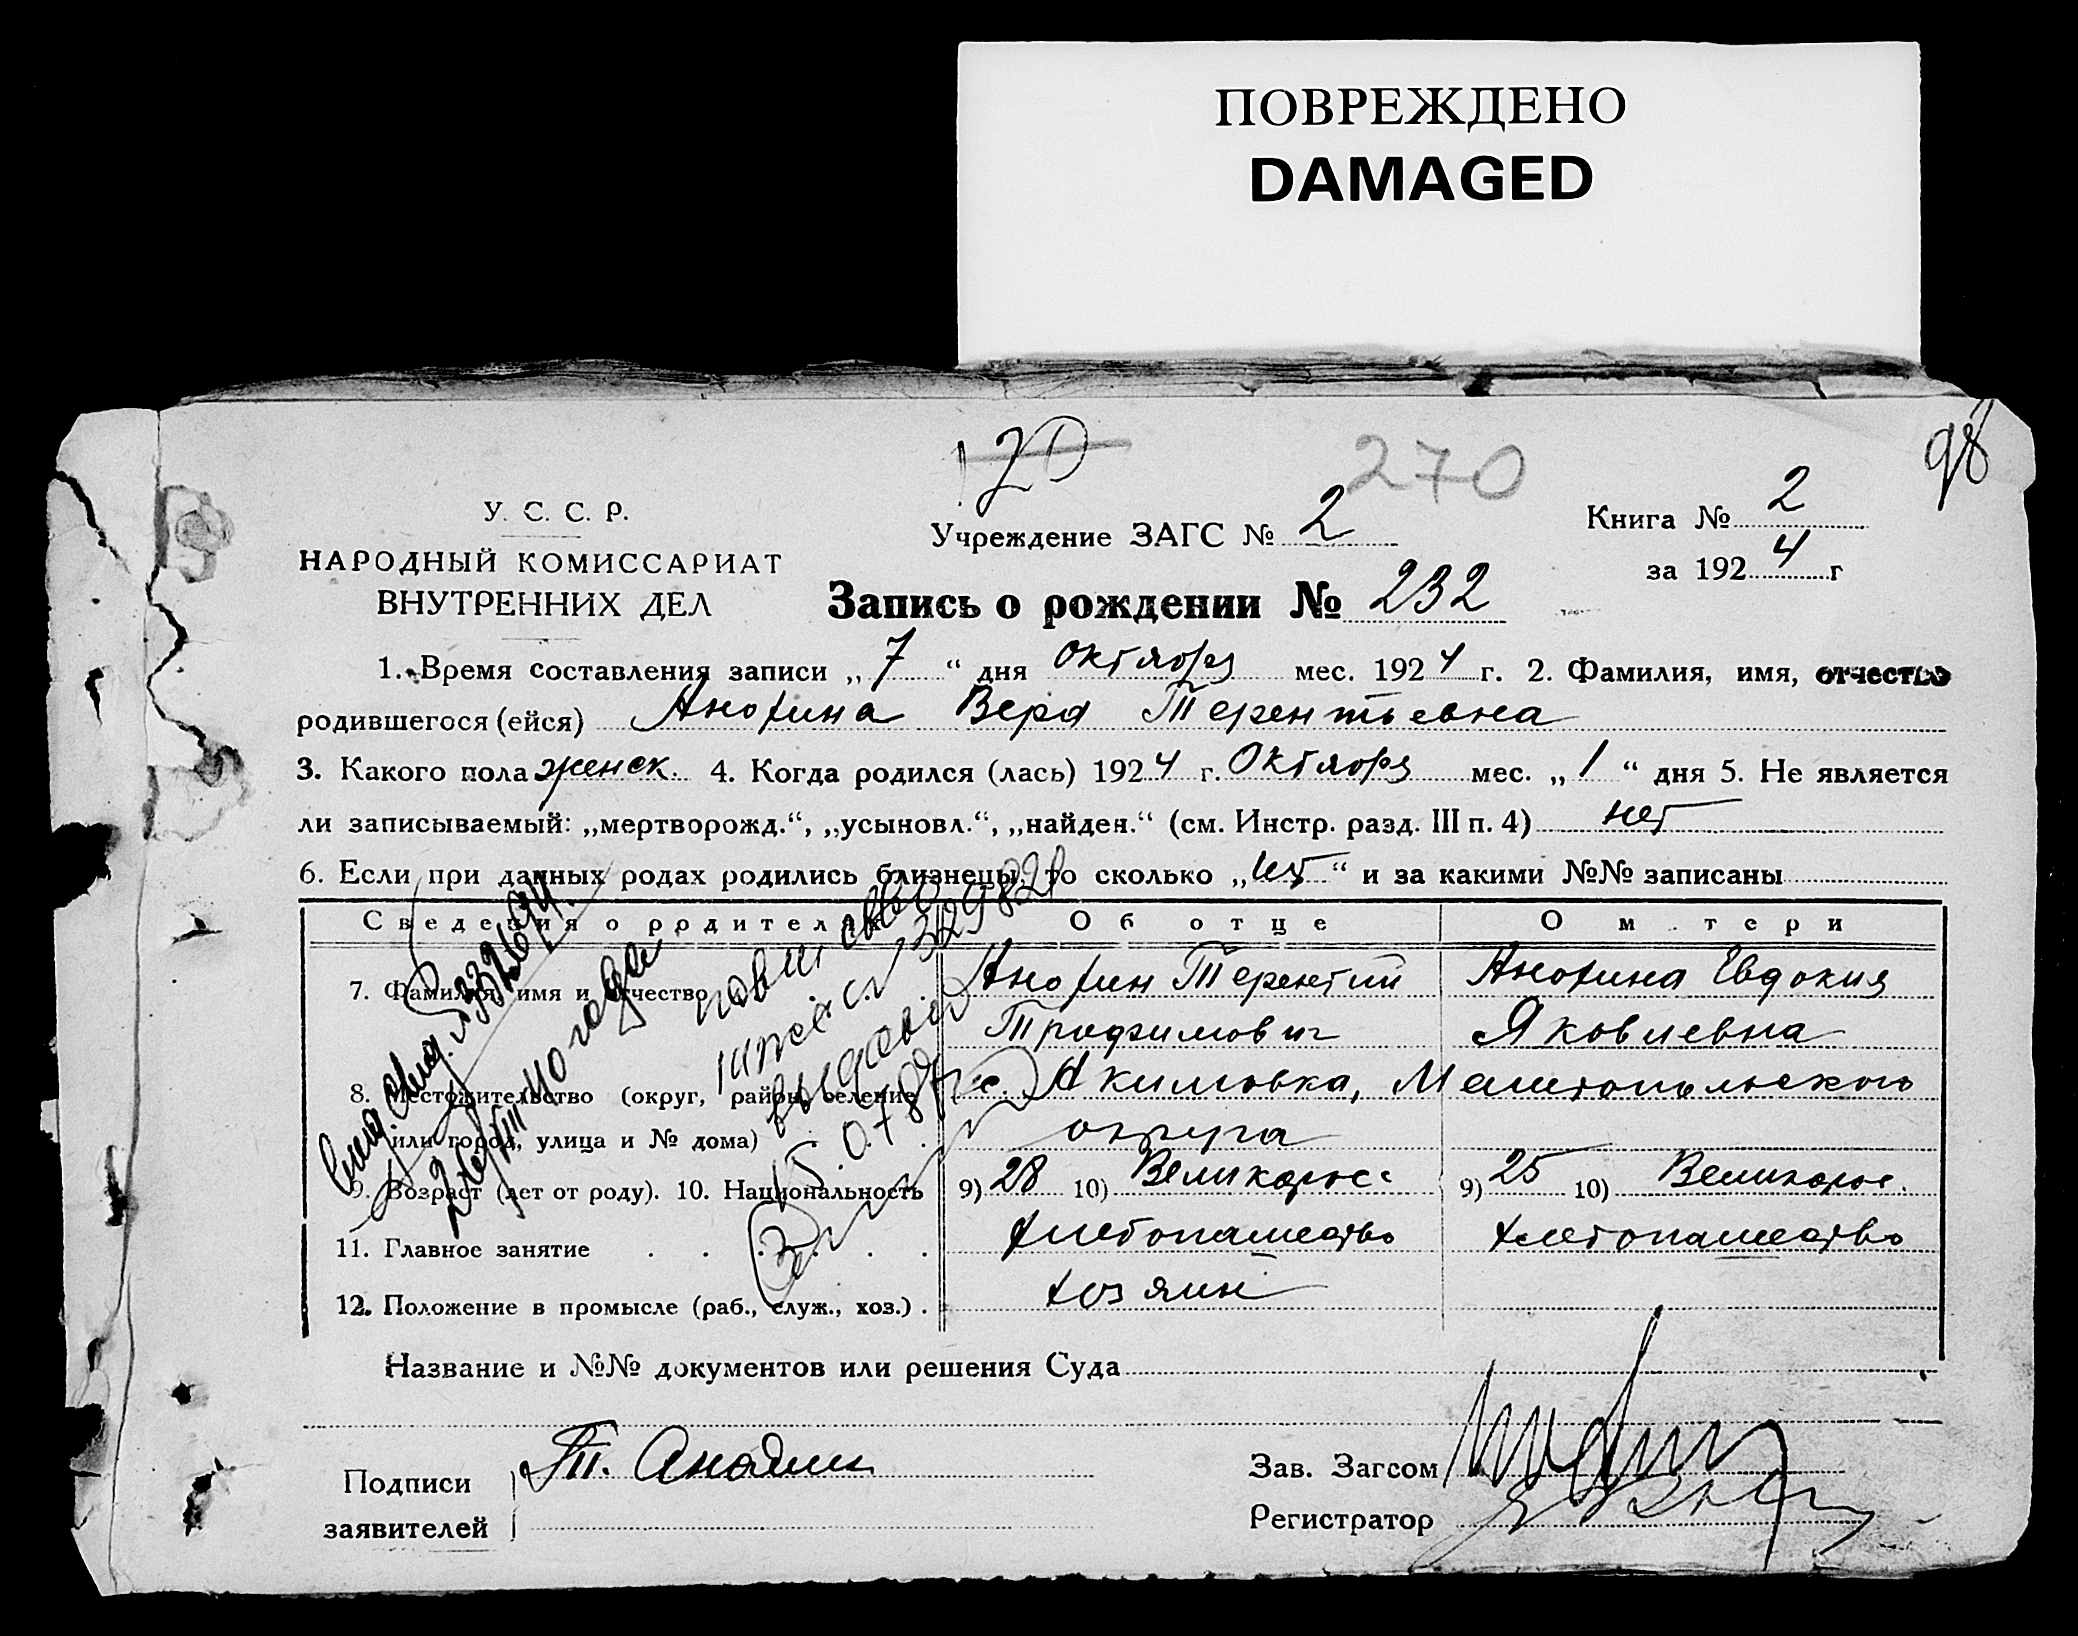 ПОВРЕЖДЕНО
DAMAGED
120
270
98
У. С. С. Р.
НАРОДНЫЙ КОМИССАРИАТ
ВНУТРЕННИХ ДЕЛ
Учреждение ЗАГС № 2
Книга № 2
за 1924 г
Запись о рождении № 232
1. Время составления записи „7“ дня Октября мес. 1924 г. 2. Фамилия, имя, отчество
родившегося (ейся) Анохина Вера Терентьевна
3. Какого пола женск. 4. Когда родился (лась) 1924 г. Октября мес. „1“ дня 5. Не является
ли записываемый: „мертворожд.“, „усыновл.“, „найден.“ (см. Инстр. разд. III п. 4) нет
6. Если при данных родах родились близнецы, то сколько „нет“ и за какими №№ записаны
Сведения о родителях Об отце О матери
7. Фамилия, имя и отчество Анохин Терентий Анохина Евдокия
Трофимович Яковлевна
8. Местожительство (округ, район, селение с. Акимовка, Мелитопольского
или город, улица и № дома) округа
9. Возраст (лет от роду). 10. Национальность 9) 28 10) Великорос. 9) 25 10) Великорос.
11. Главное занятие хлебопашество хлебопашество
12. Положение в промысле (раб., служ., хоз.) хозяин
Название и №№ документов или решения Суда
Подписи Т. Анохин
заявителей
Зав. Загсом
Регистратор